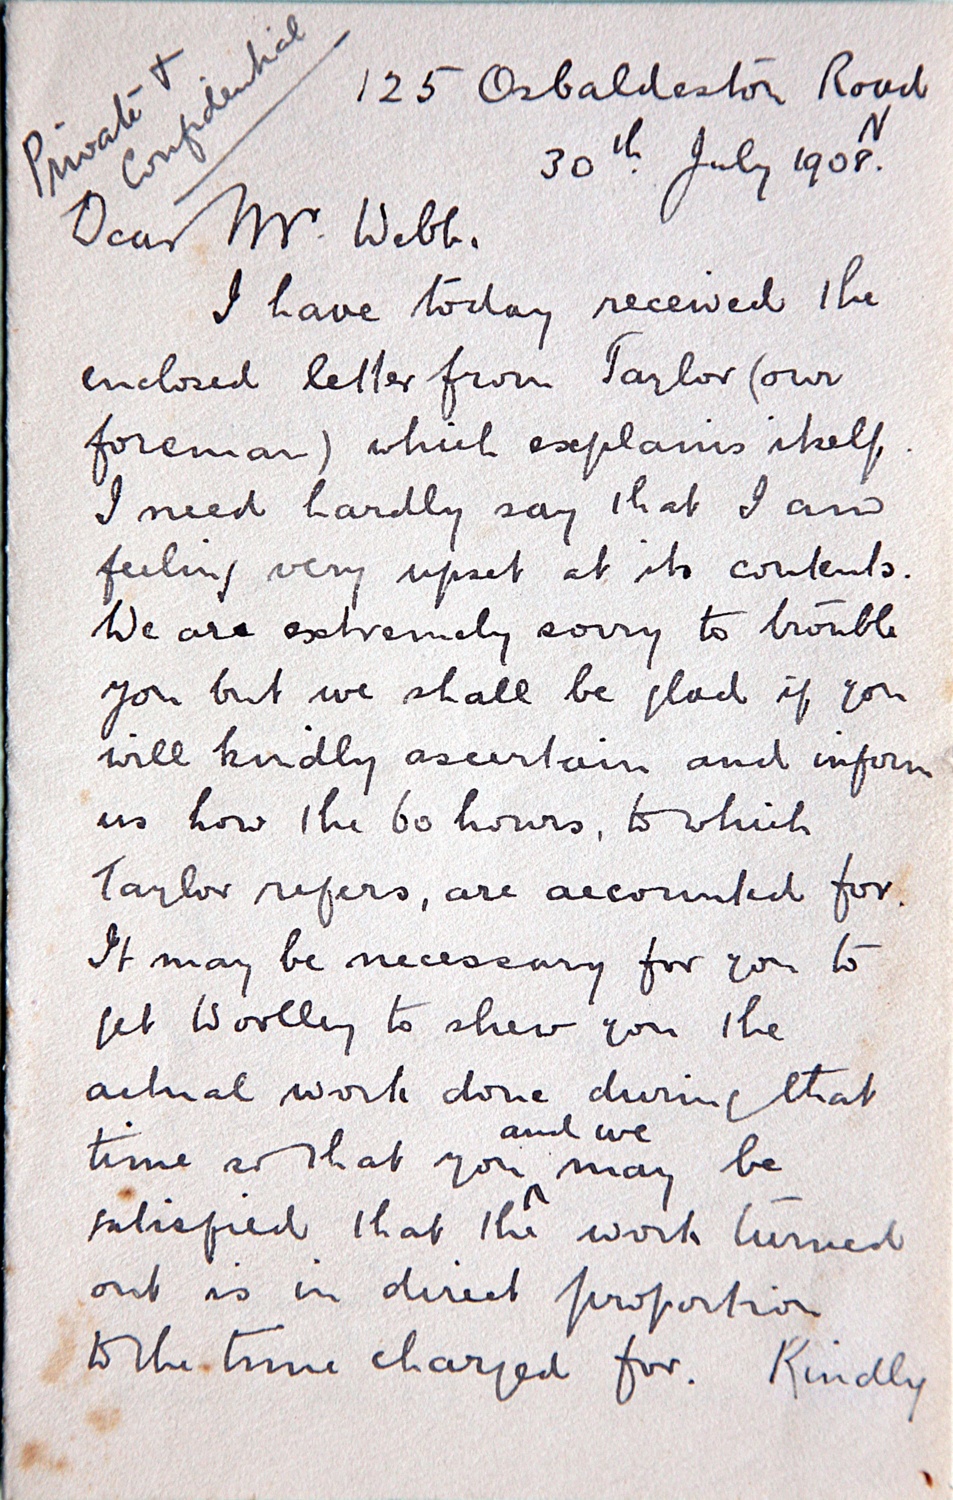 Private &
Confidential
125 Osbaldeston Road
N
30th July 1908.
Dear Mr. Webb.
I have today received the
enclosed letter from Taylor (our
foreman) which explains itself.
I need hardly say that I am
feeling very upset at its contents.
We are extremely sorry to trouble
you but we shall be glad if you
will kindly ascertain and inform
us how the 60 hours, to which
Taylor refers, are accounted for.
It may be necessary for you to
get Woolley to shew you the
actual work done during that
and we
time so that you may be
satisfied that the work turned
out is in direct proportion
to the time charged for. Kindly